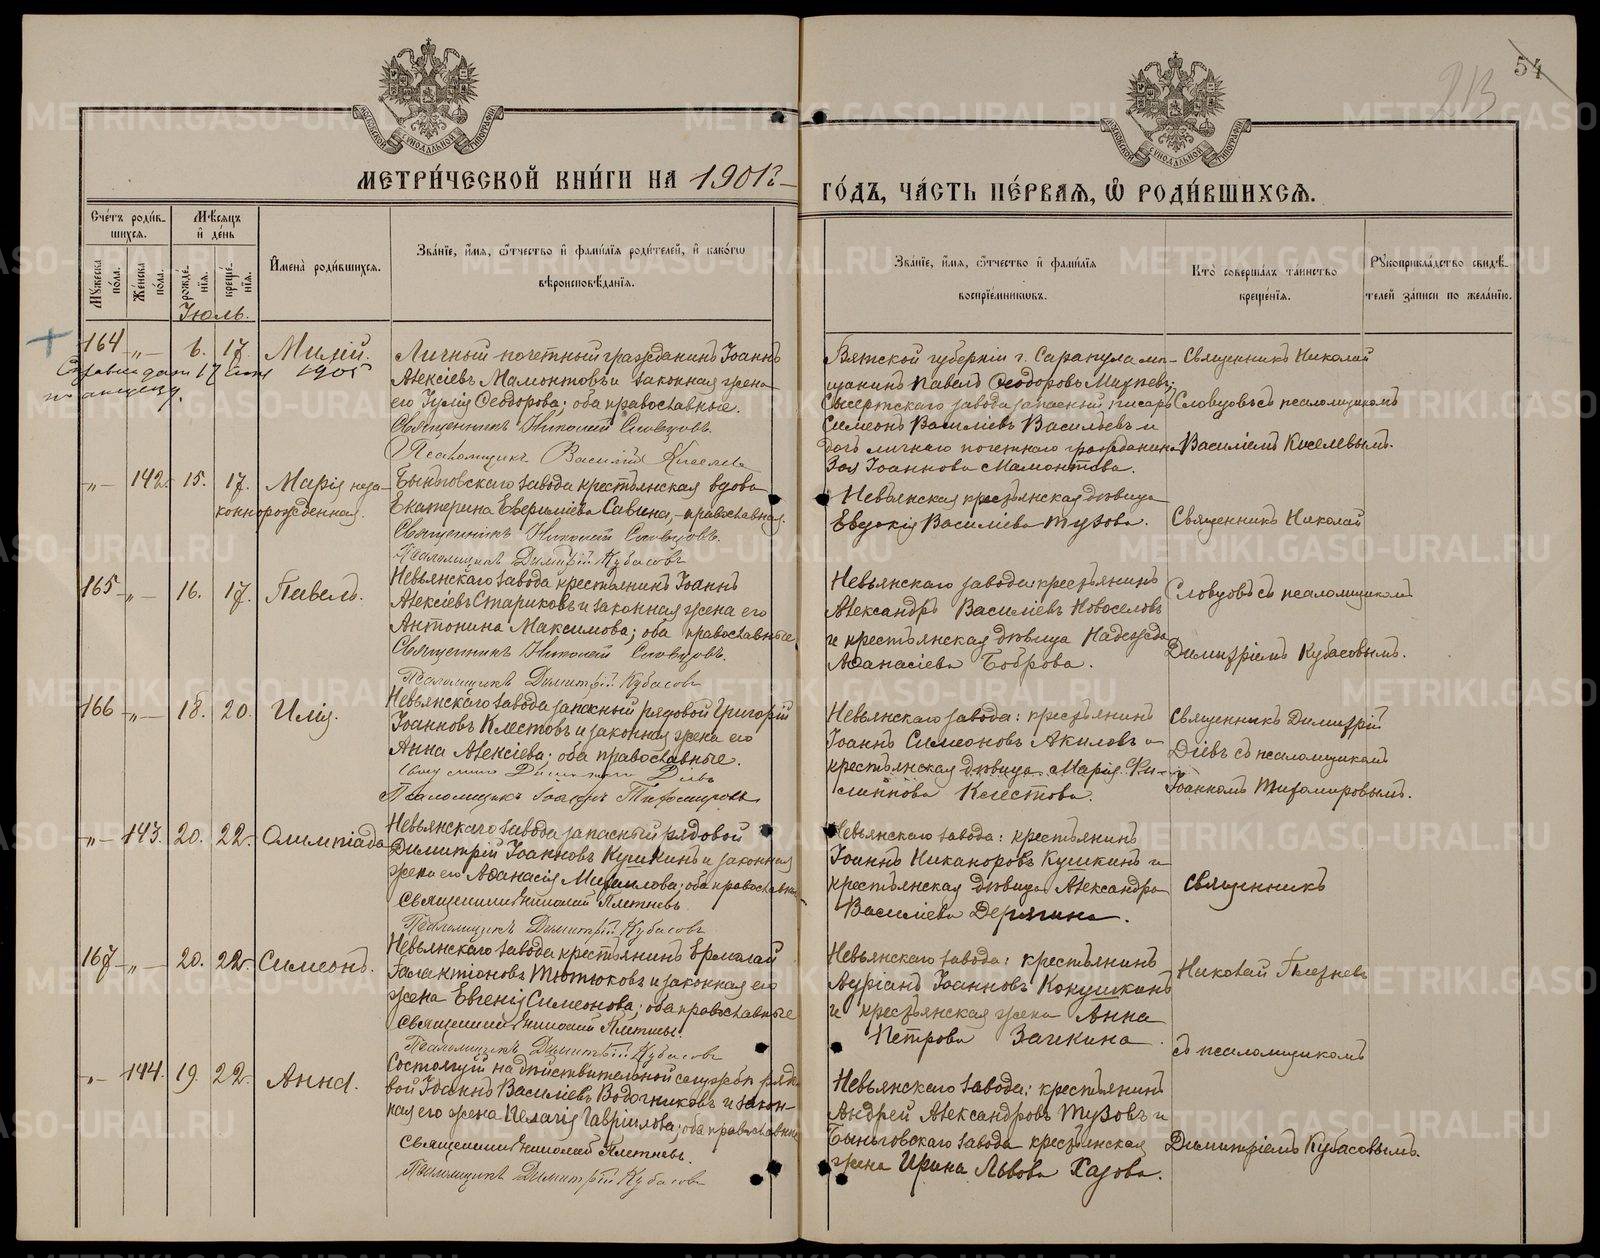 54
213
МОСКОВСКОЙ СѴНОДАЛЬНОЙ ТИПОГРАФІИ
МОСКОВСКОЙ СѴНОДАЛЬНОЙ ТИПОГРАФІИ
МЕТРИ́ЧЕСКОЙ КНИ́ГИ НА 1901й
ГО́ДЪ, ЧА́СТЬ ПЕ́РВАѦ, Ѡ҆ РОДИ́ВШИХСѦ.
Сче́тъ роди́в-
шихсѧ.
Мѣ́сѧцъ
и҆ де́нь
Мꙋ́жеска по́ла.
Же́нска по́ла.
рожде́нїѧ.
креще́нїѧ.
И҆мена̀ роди́вшихсѧ.
Зва́нїе, и҆́мѧ, ѻ҆́тчество и҆ фами́лїѧ роди́телей, и҆ како́гѡ
вѣроисповѣ́данїѧ.
Зва́нїе, и҆́мѧ, ѻ҆́тчество и҆ фами́лїѧ
воспрїе́мникѡвъ.
Кто̀ соверша́лъ та́инство
креще́нїѧ.
Рꙋкоприкла́дство свидѣ́-
телей за́писи по жела́нїю.
Іюль.
164 „ 6. 17. Милій.
Личный почетный гражданинъ Іоаннъ
Алексіевъ Мамонтовъ и законная жена
его Іулія Ѳеодорова; оба православные.
Священникъ Николай Словцовъ.
Псаломщикъ Василій Киселевъ
17 1905
Вятской губерніи г. Сарапула мѣ-
щанинъ Павелъ Ѳеодоровъ
Сысертскаго завода запасный писарь
Симеонъ Василіевъ Васильевъ и
дочь личнаго почетнаго гражданина
Зоя Іоаннова Мамонтова.
Священникъ Николай
Словцовъ съ псаломщикомъ
Василіемъ Киселевымъ.
„ 142. 15. 17. Марія неза-
коннорожденная.
Быньговскаго завода крестьянская вдова
Екатерина Савина, православная.
Священникъ Николай Словцовъ.
Псаломщикъ Димитрій Кубасовъ
Невьянская крестьянская дѣвица
Евдокія Василіева Тузова.
Священникъ Николай
165 „ 16. 17. Павелъ.
Невьянскаго завода крестьянинъ Іоаннъ
Алексіевъ Стариковъ и законная жена его
Антонина Максимова; оба православные
Священникъ Николай Словцовъ.
Псаломщикъ Димитрій Кубасовъ
Невьянскаго завода: крестьянинъ
Александръ Василіевъ Новоселовъ
и крестьянская дѣвица Надежда
Аѳанасіева Боброва.
Словцовъ съ псаломщикомъ
Димитріемъ Кубасовымъ.
166 „ 18. 20. Илія.
Невьянскаго завода запасный рядовой Григорій
Іоанновъ Клестовъ и законная жена его
Анна Алексіева; оба православные.
Священникъ Димитрій Діевъ
Псаломщикъ Іоаннъ Тихомировъ
Невьянскаго завода: крестьянинъ
Іоаннъ Симеоновъ Акиловъ и
крестьянская дѣвица Марія Фи-
липпова Клестова.
Священникъ Димитрій
Діевъ съ псаломщикомъ
Іоанномъ Тихомировымъ.
„ 143. 20. 22. Олимпіада
Невьянскаго завода запасный рядовой
Димитрій Іоанновъ Кушкинъ и законная
жена его Аѳанасія Михаилова; оба православные
Священникъ Николай Плетневъ
Псаломщикъ Димитрій Кубасовъ
Невьянскаго завода: крестьянинъ
Іоаннъ Никаноровъ Кушкинъ и
крестьянская дѣвица Александра
Василіева Дерягина.
Священникъ
167 „ 20. 22. Симеонъ.
Невьянскаго завода крестьянинъ Ермолай
Галактіоновъ Тютюковъ и законная его
жена Евгенія Симеонова; оба православные
Священникъ Николай Плетневъ
Псаломщикъ Димитрій Кубасовъ
Невьянскаго завода: крестьянинъ
Іоанновъ Кокушкинъ
и крестьянская жена Анна
Петрова Зачкина
Николай Плетневъ
съ псаломщикомъ
„ 144. 19. 22. Анна.
Состоящій на дѣйствительной службѣ рядо-
вой Іоаннъ Василіевъ Водочниковъ и закон-
ная его жена Пелагія Гавріилова; оба православные
Священникъ Николай Плетневъ.
Псаломщикъ Димитрій Кубасовъ
Невьянскаго завода: крестьянинъ
Андрей Александровъ Тузовъ и
Быньговскаго завода крестьянская
жена Ирина Львова Хазова.
Димитріемъ Кубасовымъ.
METRIKI.GASO-URAL.RU